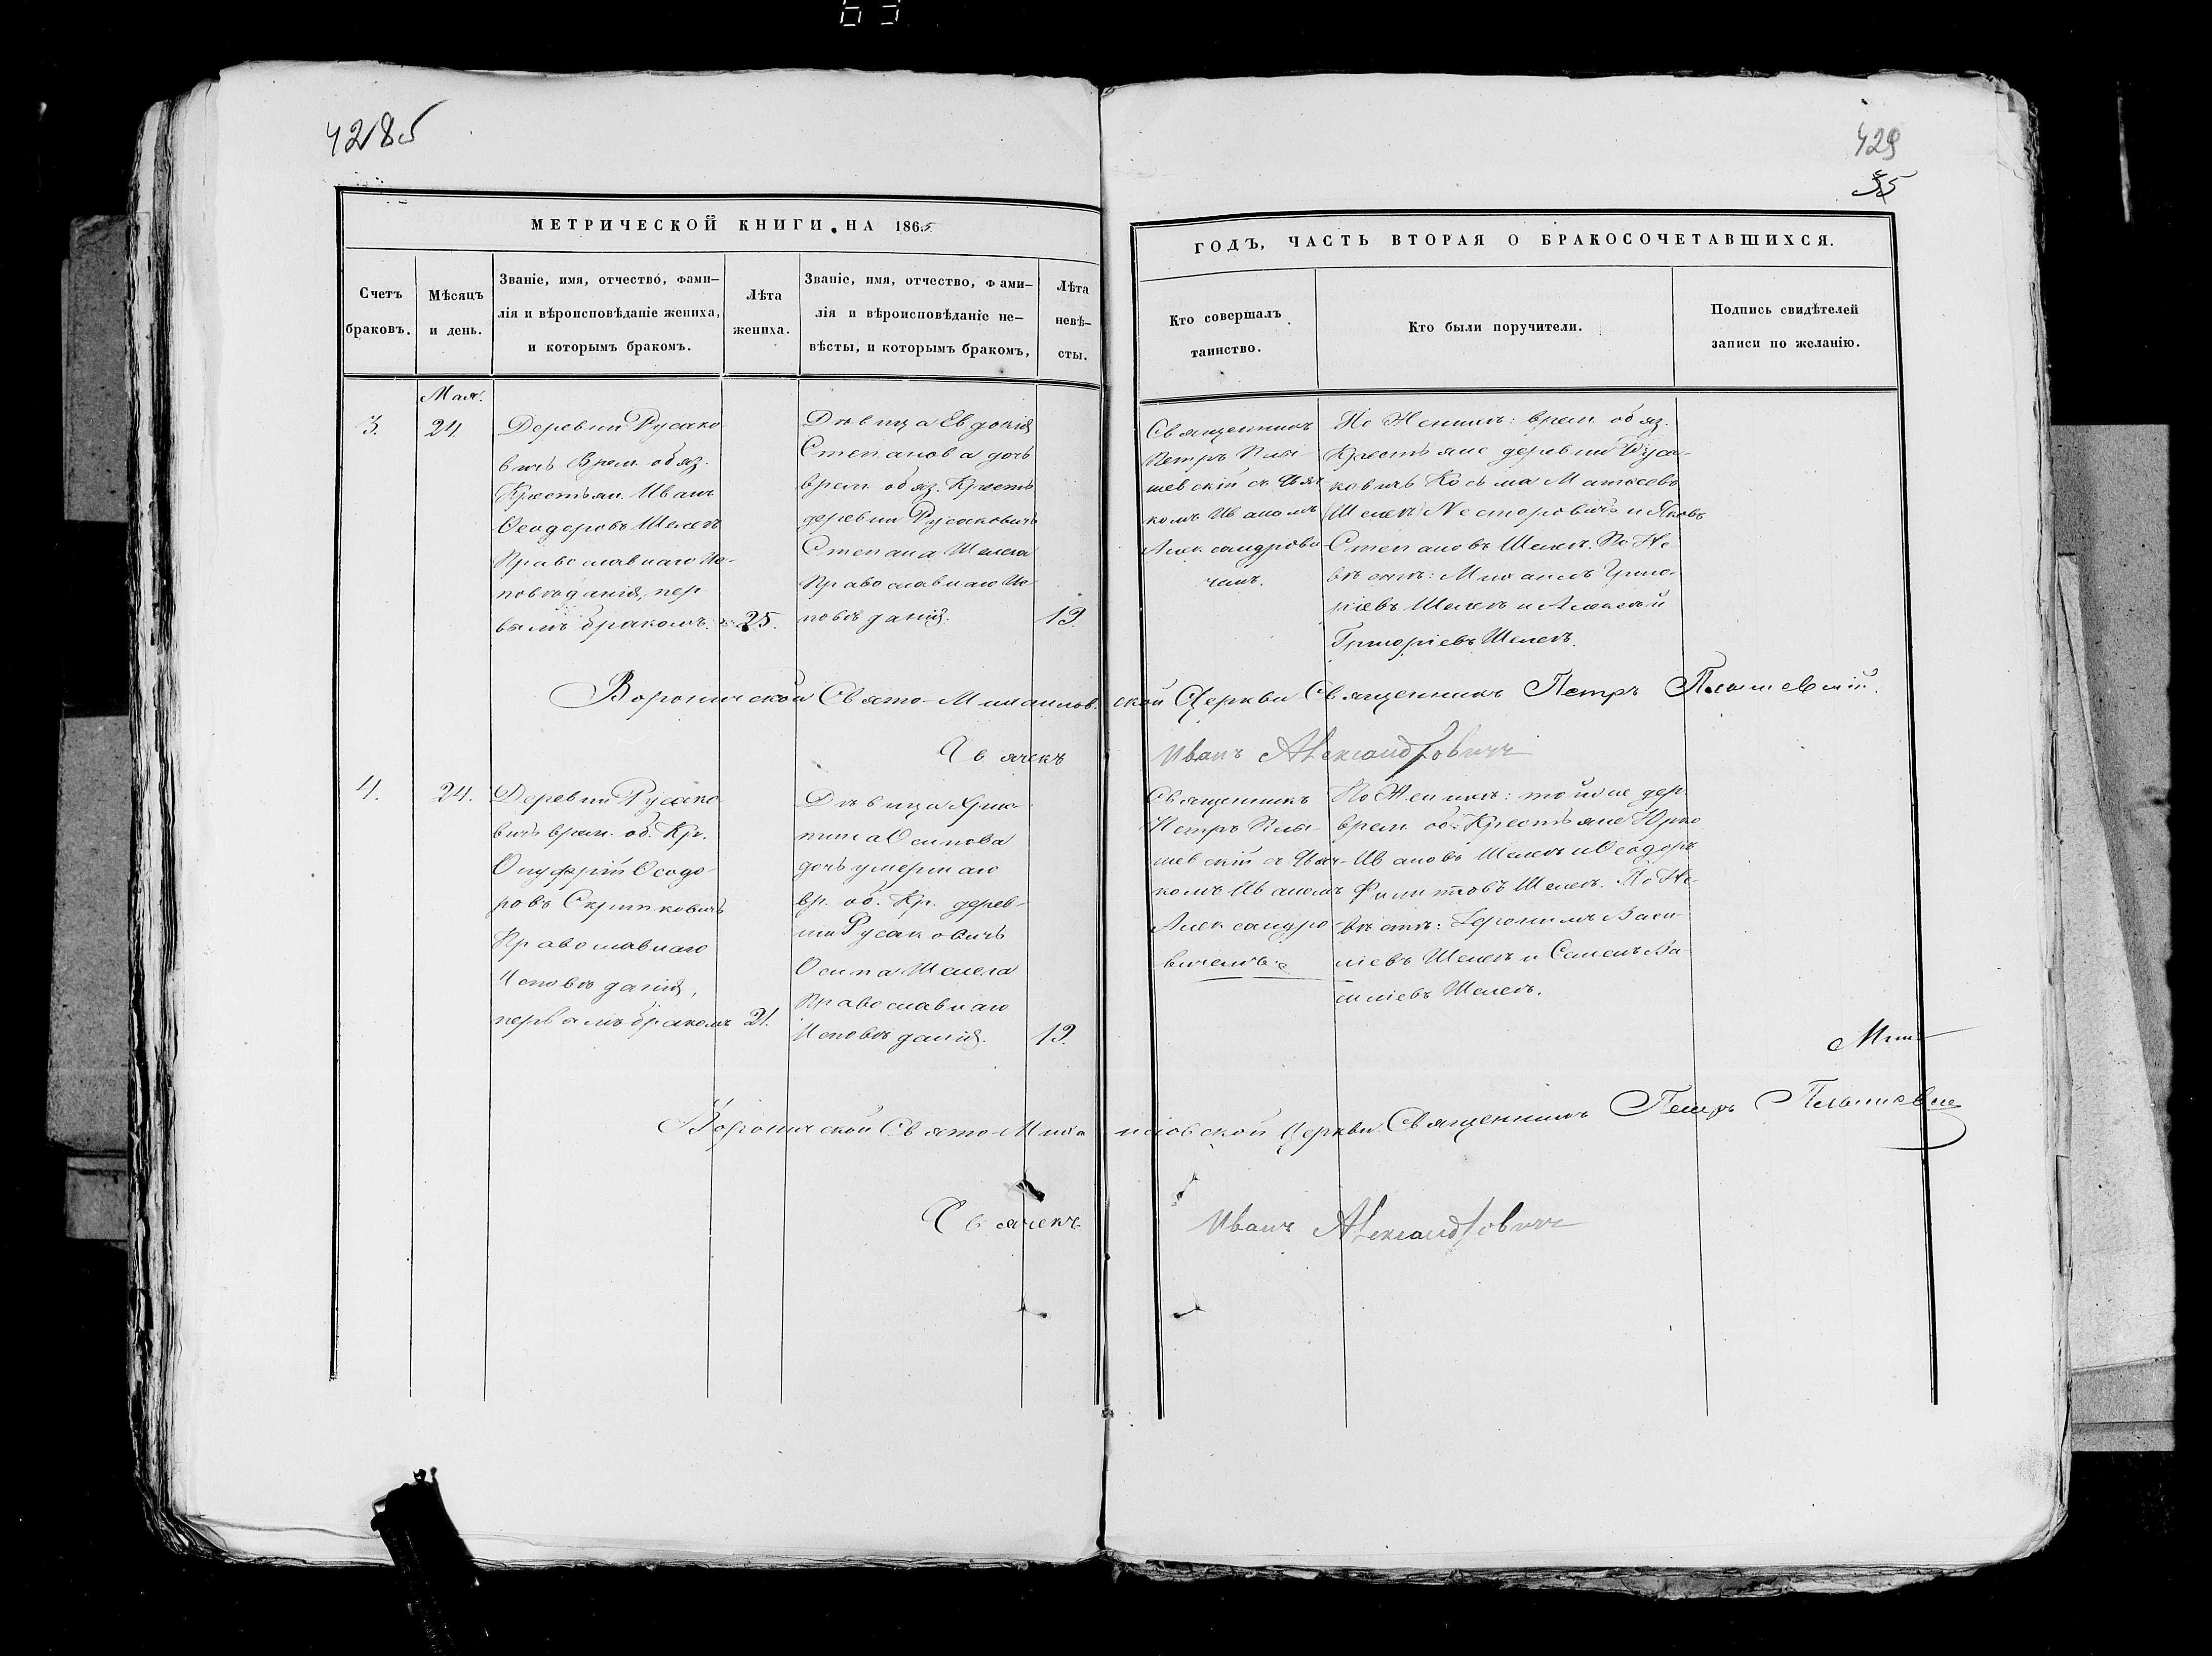 63
42185
429
55
МЕТРИЧЕСКОЙ КНИГИ, НА 1865
ГОДЪ, ЧАСТЬ ВТОРАЯ О БРАКОСОЧЕТАВШИХСЯ.
Счетъ
браковъ.
Мѣсяцъ
и день.
Званіе, имя, отчество, фами–
лія и вѣроисповѣданіе жениха,
и которымъ бракомъ.
Лѣта
жениха.
Званіе, имя, отчество, фами–
лія и вѣроисповѣданіе не–
вѣсты, и которымъ бракомъ,
Лѣта
невѣ–
сты.
Кто совершалъ
таинство.
Кто были поручители.
Подпись свидѣтелей
записи по желанію.
Мая.
3.
24
Деревни Русако
вичь Врем. обяз.
Крестьян. Иванъ
Ѳеодоровъ Шелегъ
Православнаго Ис-
повѣданія, пер
вымъ бракомъ.
25.
Дѣвица Евдокія
Степанова дочь
врем. обяз. Крест.
деревни Русаковичь
Степана Шелега
Православнаго Ис-
повѣданія.
19.
Священникъ
Петръ Плы-
шевскій съ Дьяч
комъ Иваномъ
Александрови
чемъ.
По Женихѣ: врем. обяз.
Крестьяне деревни Руса-
ковичь Косьма Матѳеевъ
Шелегъ Несторовичъ и Яковъ
Степановъ Шелегъ. По Не-
вѣстѣ: Михаилъ Григо-
ріевъ Шелегъ и Алексѣй
Григоріевъ Шелегъ.
Вороничской Свято-Михаилов. ской Церкви Священникъ Петръ Плышевскій.
Дьячекъ Иванъ Александровичъ
4.
24.
Деревни Русако
вичь врем. об. Кр.
Онуфрій Ѳеодо-
ровъ Скрипковичъ
Православнаго
Исповѣданія,
первымъ бракомъ
21.
Дѣвица
Осипова
дочь умершаго
вр. об. Кр. дерев-
ни Русаковичь
Осипа Шелега
Православнаго
Исповѣданія.
19.
Священникъ
Петръ Плы-
шевскій съ Дьяч-
комъ Иваномъ
Александро
вичемъ.
По Женихѣ: той же дер.
врем. об. Крестьяне Юрко
Ивановъ Шелегъ и Ѳеодоръ
Филиповъ Шелегъ. По Не-
вѣстѣ: Іеронимъ Васи-
ліевъ Шелегъ и Семенъ Ва
силіевъ Шелегъ.
Вороничской Свято-Миха иловской Церкви Священникъ Петръ
Дьячекъ Иванъ Александровичъ